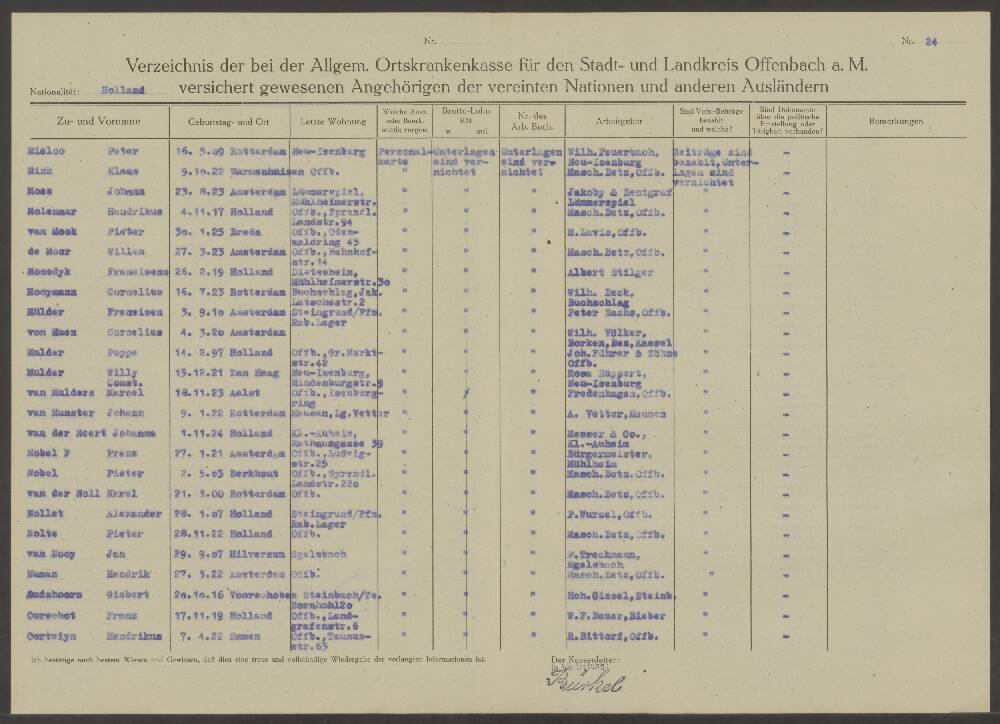 Nr. Nr. 24
Verzeichnis der bei der Allgem. Ortskrankenkasse für den Stadt- und Landkreis Offenbach a. M.
Nationalität: Holland versichert gewesenen Angehörigen der vereinten Nationen und anderen Ausländern
Zu- und Vorname Geburtstag- und Ort Letzte Wohnung Welche Ausw. oder Beurk. wurde vorgen. Brutto-Lohn RM w. mtl. Nr. des Arb. Buch. Arbeitgeber Sind Vers-Beiträge bezahlt und welche? Sind Dokumente über die politische Einstellung oder Tätigkeit vorhanden? Bemerkungen
Peter 16. 5.09 Rotterdam Neu-Isenburg Personal- Unterlagen Unterlagen Wilh.Feuerbach, Beiträge sind -
karte sind ver- sind ver- Neu-Isenburg bezahlt,Unter-
Mink Klaas 9.10.22 Offb. " nichtet nichtet Masch.Betz,Offb. lagen sind -
vernichtet
Moes Johann 23. 8.23 Amsterdam Lämmerspiel, " " " Jakoby & Zentgraf " -
Mühlheimerstr. Lämmerspiel
Molenaar Hendrikus 4.11.17 Holland Offb.,Sprendl. " " " Masch.Betz,Offb. " -
Landstr.94
van Mook Pieter 30. 1.25 Breda Offb.,Oden- " " " M.Lavis,Offb. " -
waldring 45
de Moor Willem 27. 3.23 Amsterdam Offb.,Bahnhof- " " " Masch.Betz,Offb. " -
str.14
Moosdyk 26. 2.19 Holland Dietesheim, " " " Albert Stilger " -
Mühlheimerstr.30
Mooymann Cornelius 16. 7.23 Rotterdam Buchschlag,Jak. " " " Wilh. Beck, " -
Latschastr.2 Buchschlag
Mülder 3. 9.10 Amsterdam Steingrund/Ffm. " " " Peter Sachs,Offb. " -
Rab.Lager
von Muen Cornelius 4. 3.20 Amsterdam " " " Wilh. Völker, " -
Borken,Bez,Kassel
Mulder Poppe 14. 2.97 Holland Offb.,Gr.Markt- " " " Joh.Führer & Söhne " -
str.42 Offb.
Mulder Willy 15.12.21 Den Haag Neu-Isenburg, " " " Rosa Ruppert, " -
Const. Hindenburgstr.9 Neu-Isenburg
van Mulders Marcel 18.11.23 Aalst Offb.,Isenburg- " " Fredenhagen,Offb. " -
ring
van Munster Johann 9. 1.22 Rotterdam Hausen,Lg.Vetter " " " A. Vetter,Hausen " -
van der Neert Johanna 1.11.24 Holland Kl.-Auheim, " " " Messer & Co., " -
Rathausgasse 39 Kl.-Auheim
Nobel F Frans 27. 1.21 Amsterdam Offb.,Ludwig- " " " Bürgermeister, " -
str.25 Mühlheim
Nobel Pieter 2. 5.03 Berkhout Offb.,Sprendl. " " " Masch.Betz.Offb. " -
Landstr.220
van der Noll Karel 21. 3.00 Rotterdam Offb. " " " Masch.Betz,Offb. " -
Nollet Alexander 28. 1.07 Holland Steingrund/Ffm. " " " P.Wurzel,Offb. " -
Rab.Lager
Nolte Pieter 28.11.22 Holland Offb. " " " Masch.Betz,Offb. " -
van Nooy Jan 29. 9.07 Hilversum Egelsbach " " " -
Egelsbach
Numan Hendrik 27. 3.22 Amsterdam Offb. " " " Masch.Betz,Offb. " -
Oudshoorn Gisbert 20.10.16 Voorschoten Steinbach/Ts. " " " Hch.Giesel,Steinb. " -
Bornhohl20
Oorschot Franz 17.11.19 Holland Offb.,Land- " " " W.F.Bauer,Bieber " -
grafenstr.6
Oortwiyn Hendrikus 7. 4.22 Emmen Offb.,Taunus- " " " R.Bittorf,Offb. " -
str.63
Ich bestätige nach bestem Wissen und Gewissen, daß dies eine treue und vollständige Wiedergabe der verlangten Informationen ist.
Der Kassenleiter:
In Vertretung:
Bürkel